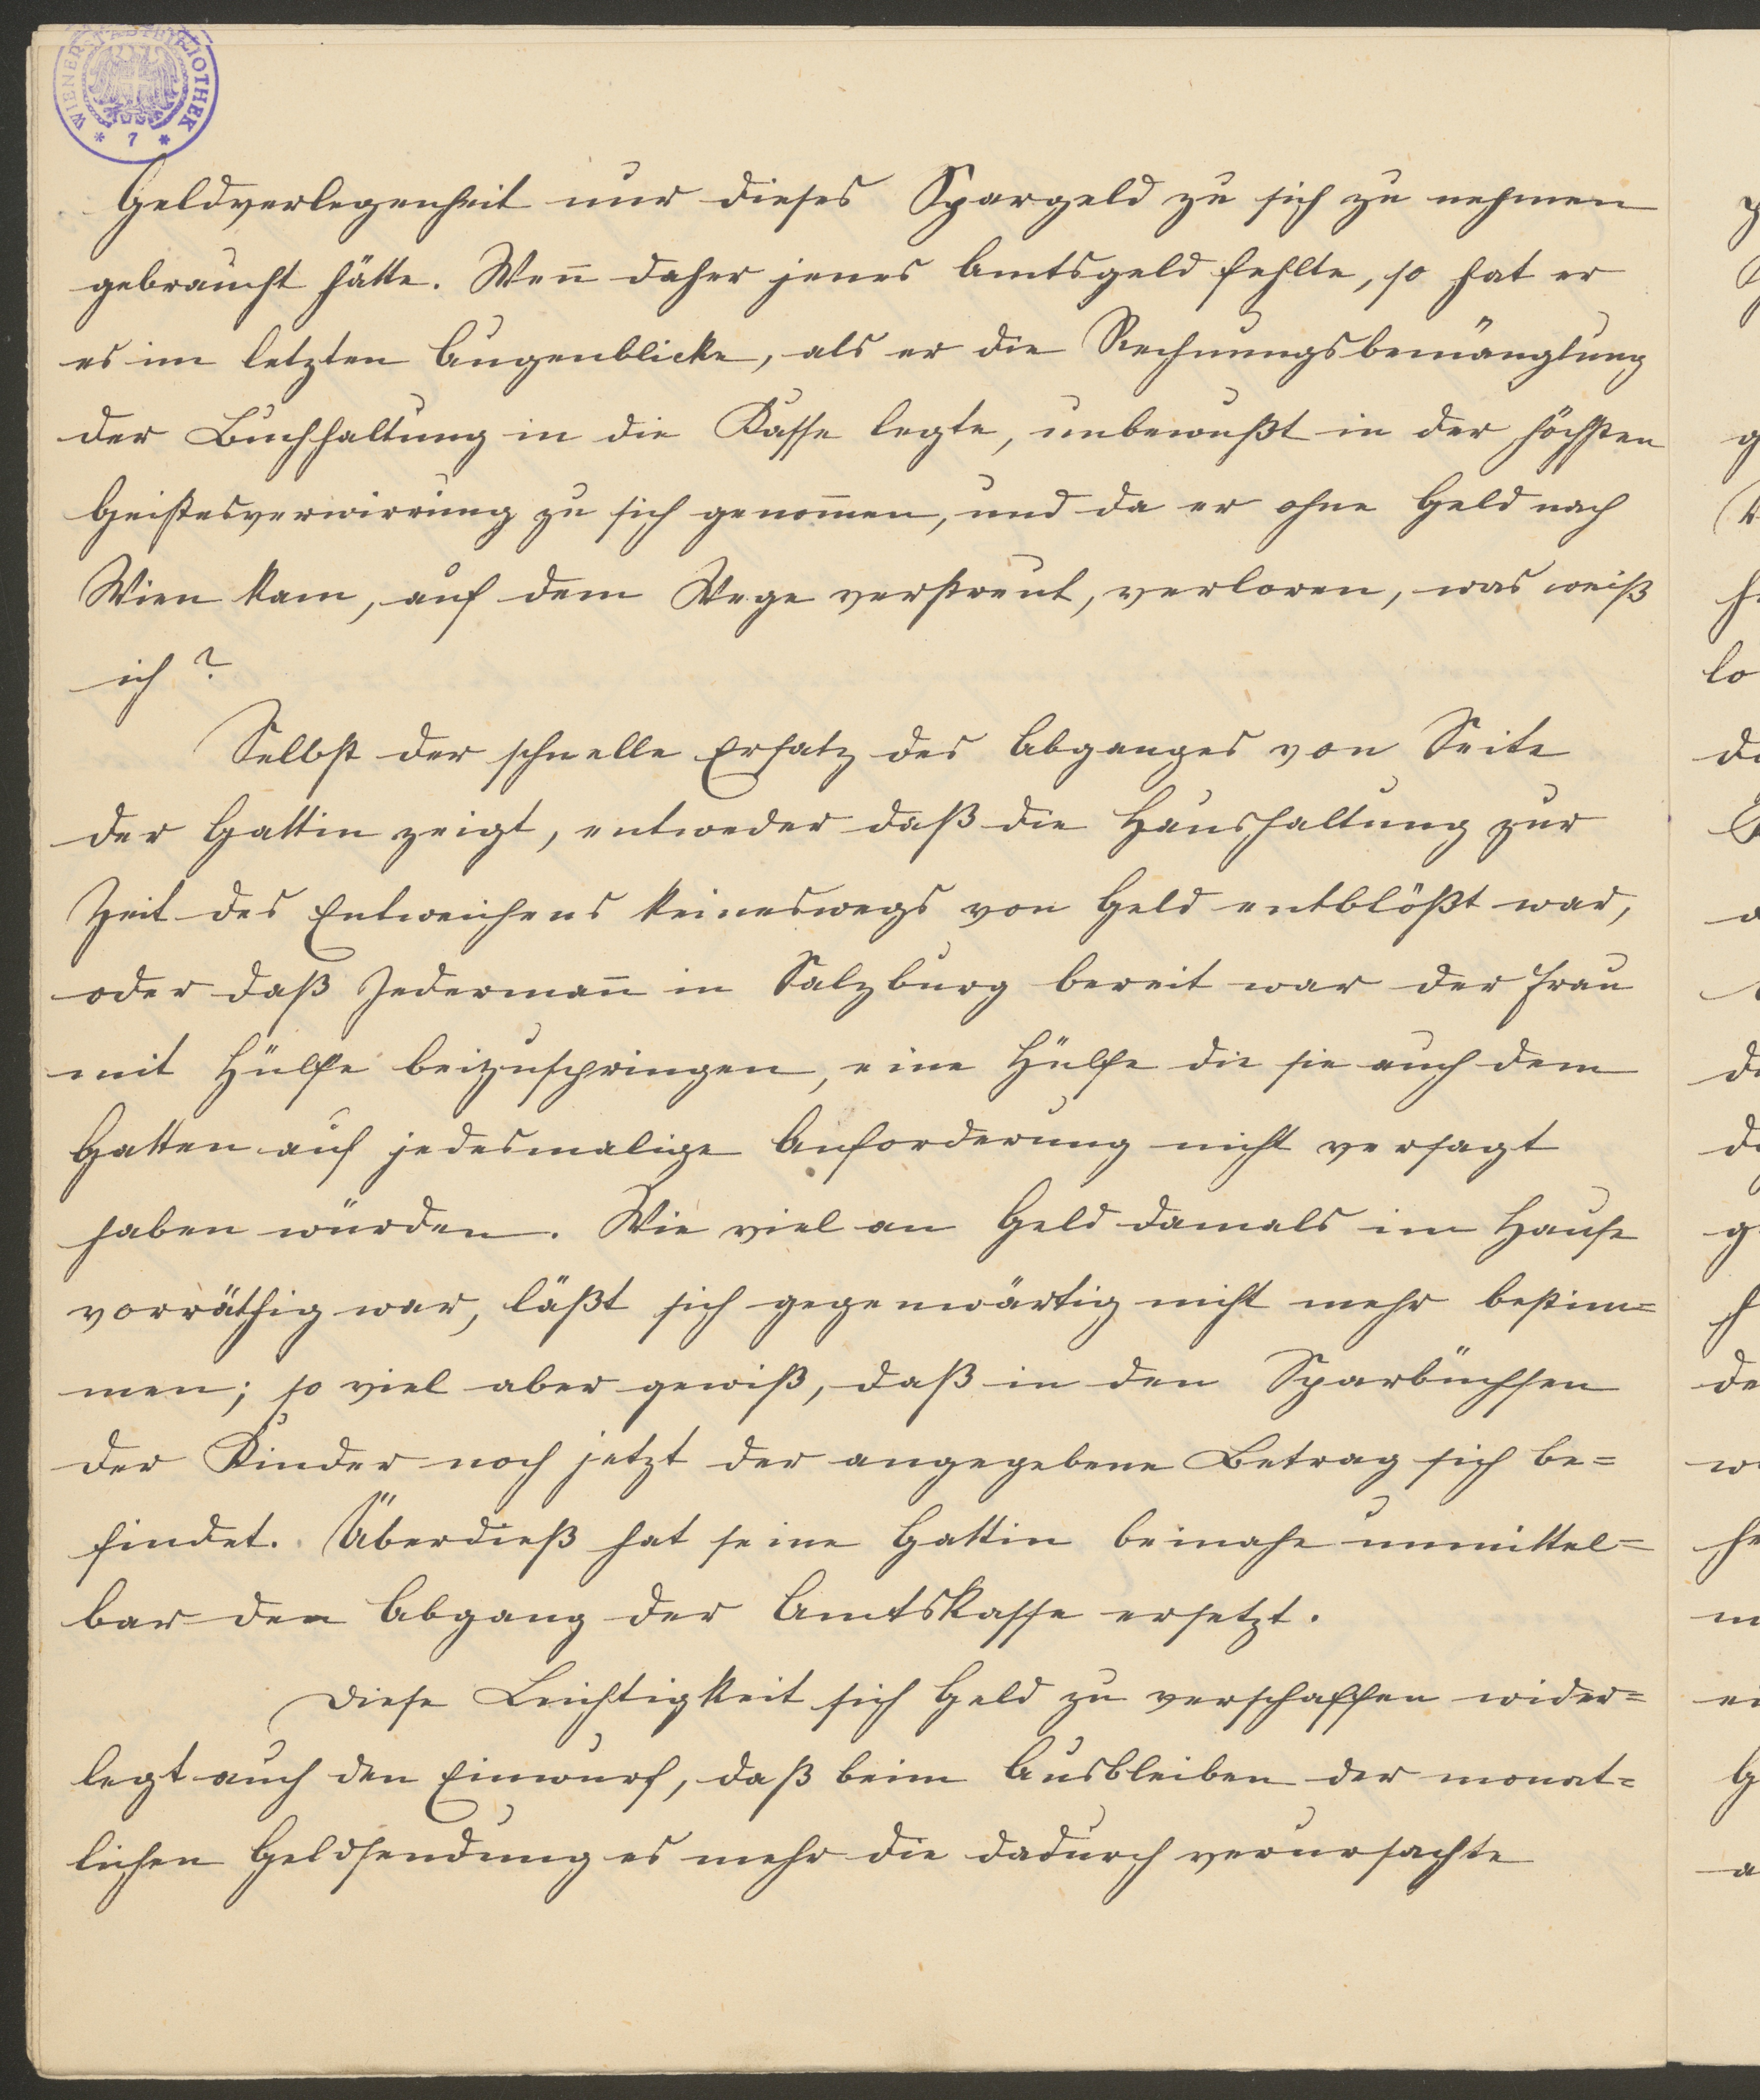 WIENER STADTBIBLIOTHEK
* 7 *
Geldverlegenheit nur dieses Spargeld zu sich zu nehmen
gebraucht hätte. Weñ daher jenes Amtsgeld fehlte, so hat er
es im letzten Augenblicke, als er die Rechnungsbemänglung
der Buchhaltung in die Kasse legte, unbewußt in der höchsten
Geistesverwirrung zu sich genom̄en, und da er ohne Geld nach
Wien kam, auf dem Wege verstreut, verloren, was weiß
ich?
Selbst der schnelle Ersatz des Abganges von Seite
der Gattin zeigt, entweder daß die Haushaltung zur
Zeit des Entweichens keineswegs von Geld entblößt war,
oder daß Jedermañ in Salzburg bereit war der Frau
mit Hülfe beizuspringen, eine Hülfe die sie auch dem
Gatten auf jedesmalige Anforderung nicht versagt
haben würden. Wie viel an Geld damals im Hause
vorräthig war, läßt sich gegenwärtig nicht mehr bestim=
men; so viel aber gewiß, daß in den Sparbüchsen
der Kinder noch jetzt der angegebene Betrag sich be=
findet. Überdieß hat seine Gattin beinahe unmittel=
bar den Abgang der Amtskasse ersetzt.
Diese Leichtigkeit sich Geld zu verschaffen wider=
legt auch den Einwurf, daß beim Ausbleiben der monat=
lichen Geldsendung es mehr die dadurch verursachte